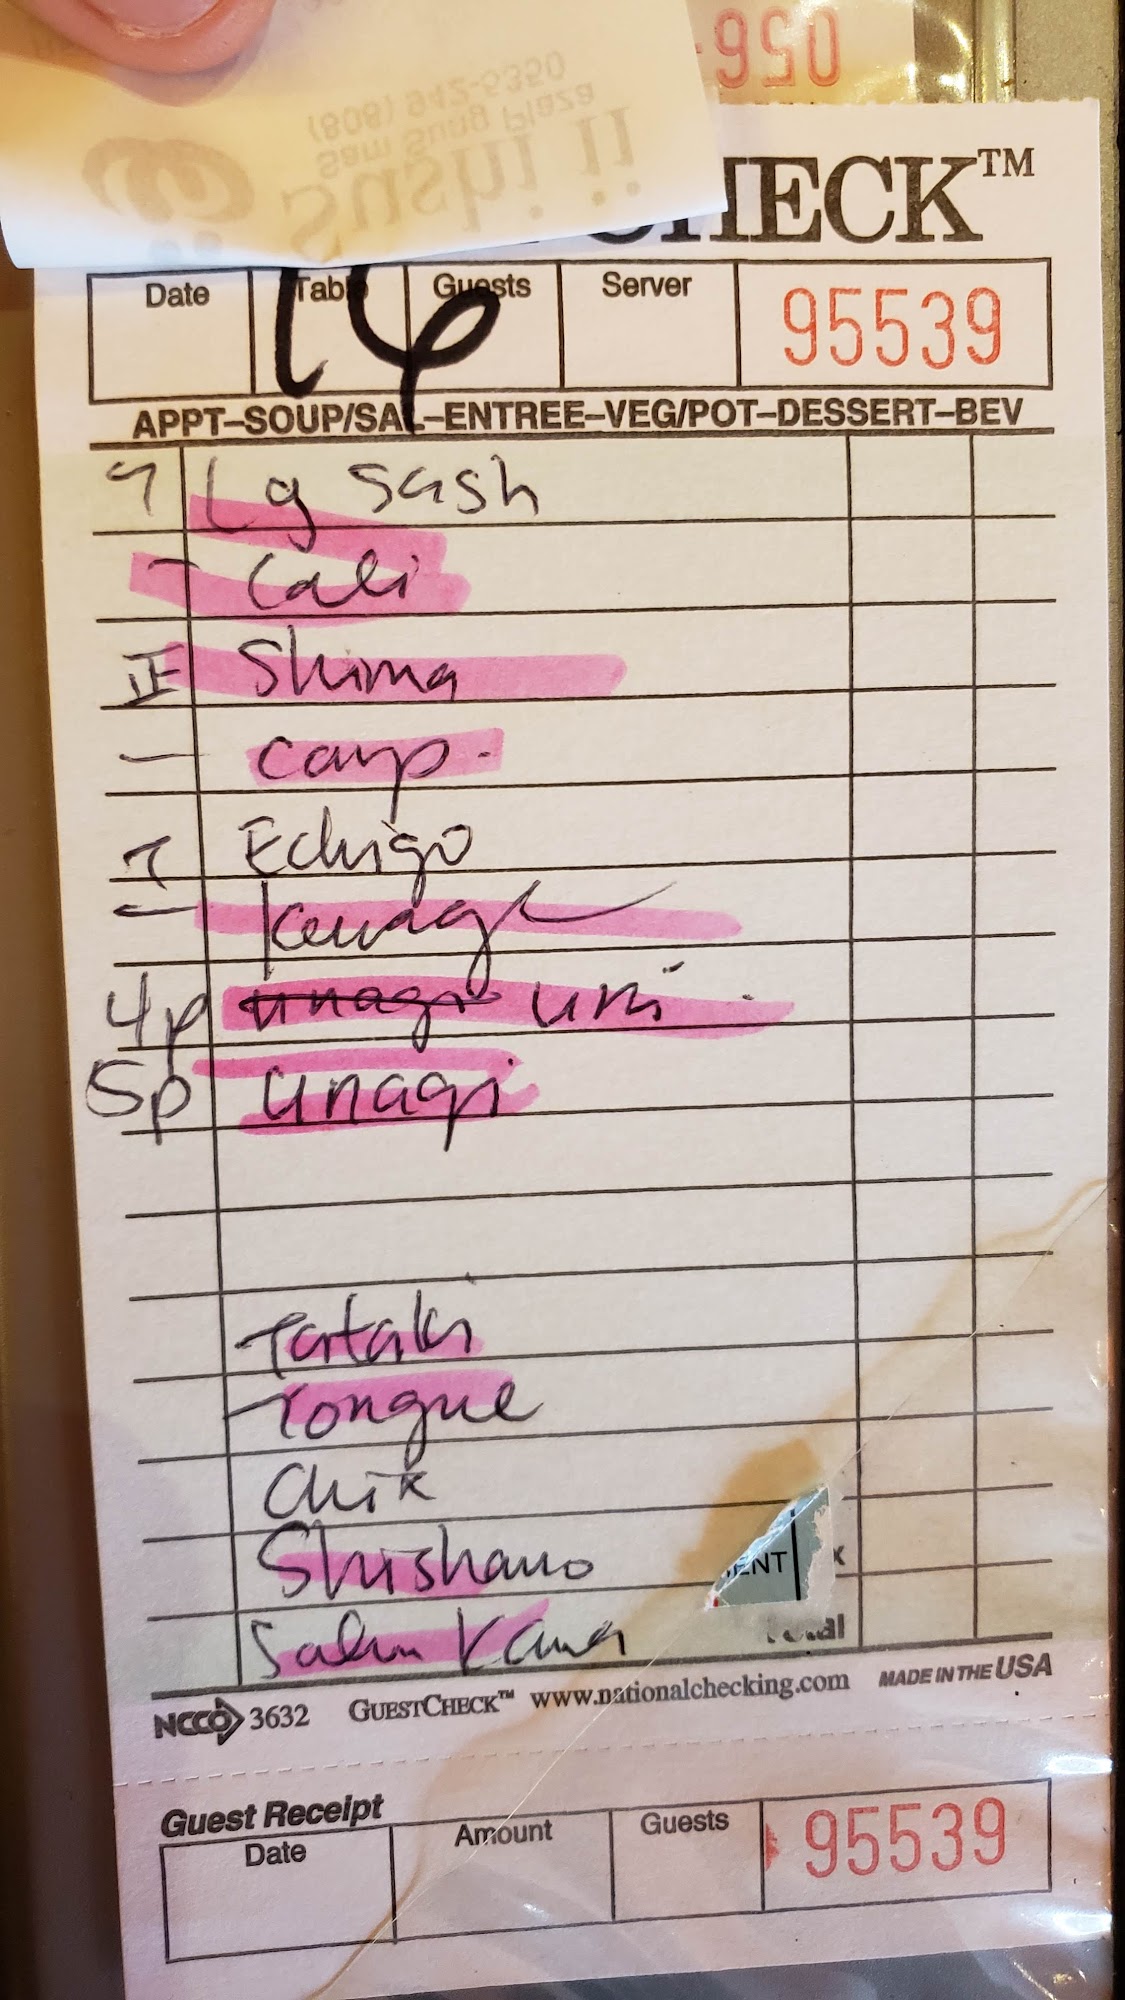 056
(808) 942-5350
Sam Sung Plaza
Sushi ii
CHECK™
Date Table Guests Server 95539
14
APPT–SOUP/SAL–ENTREE–VEG/POT–DESSERT–BEV
Lg Sash
一 Cali
正 Shima
一 Carp.
T Echigo
一
4p unagi uni
5p unagi
Tataki
Tongue
Chix
Shishamo
Salm Kama
ENT x
Total
NCCO 3632 GUESTCHECK™ www.nationalchecking.com MADE IN THE USA
Guest Receipt
Date Amount Guests 95539